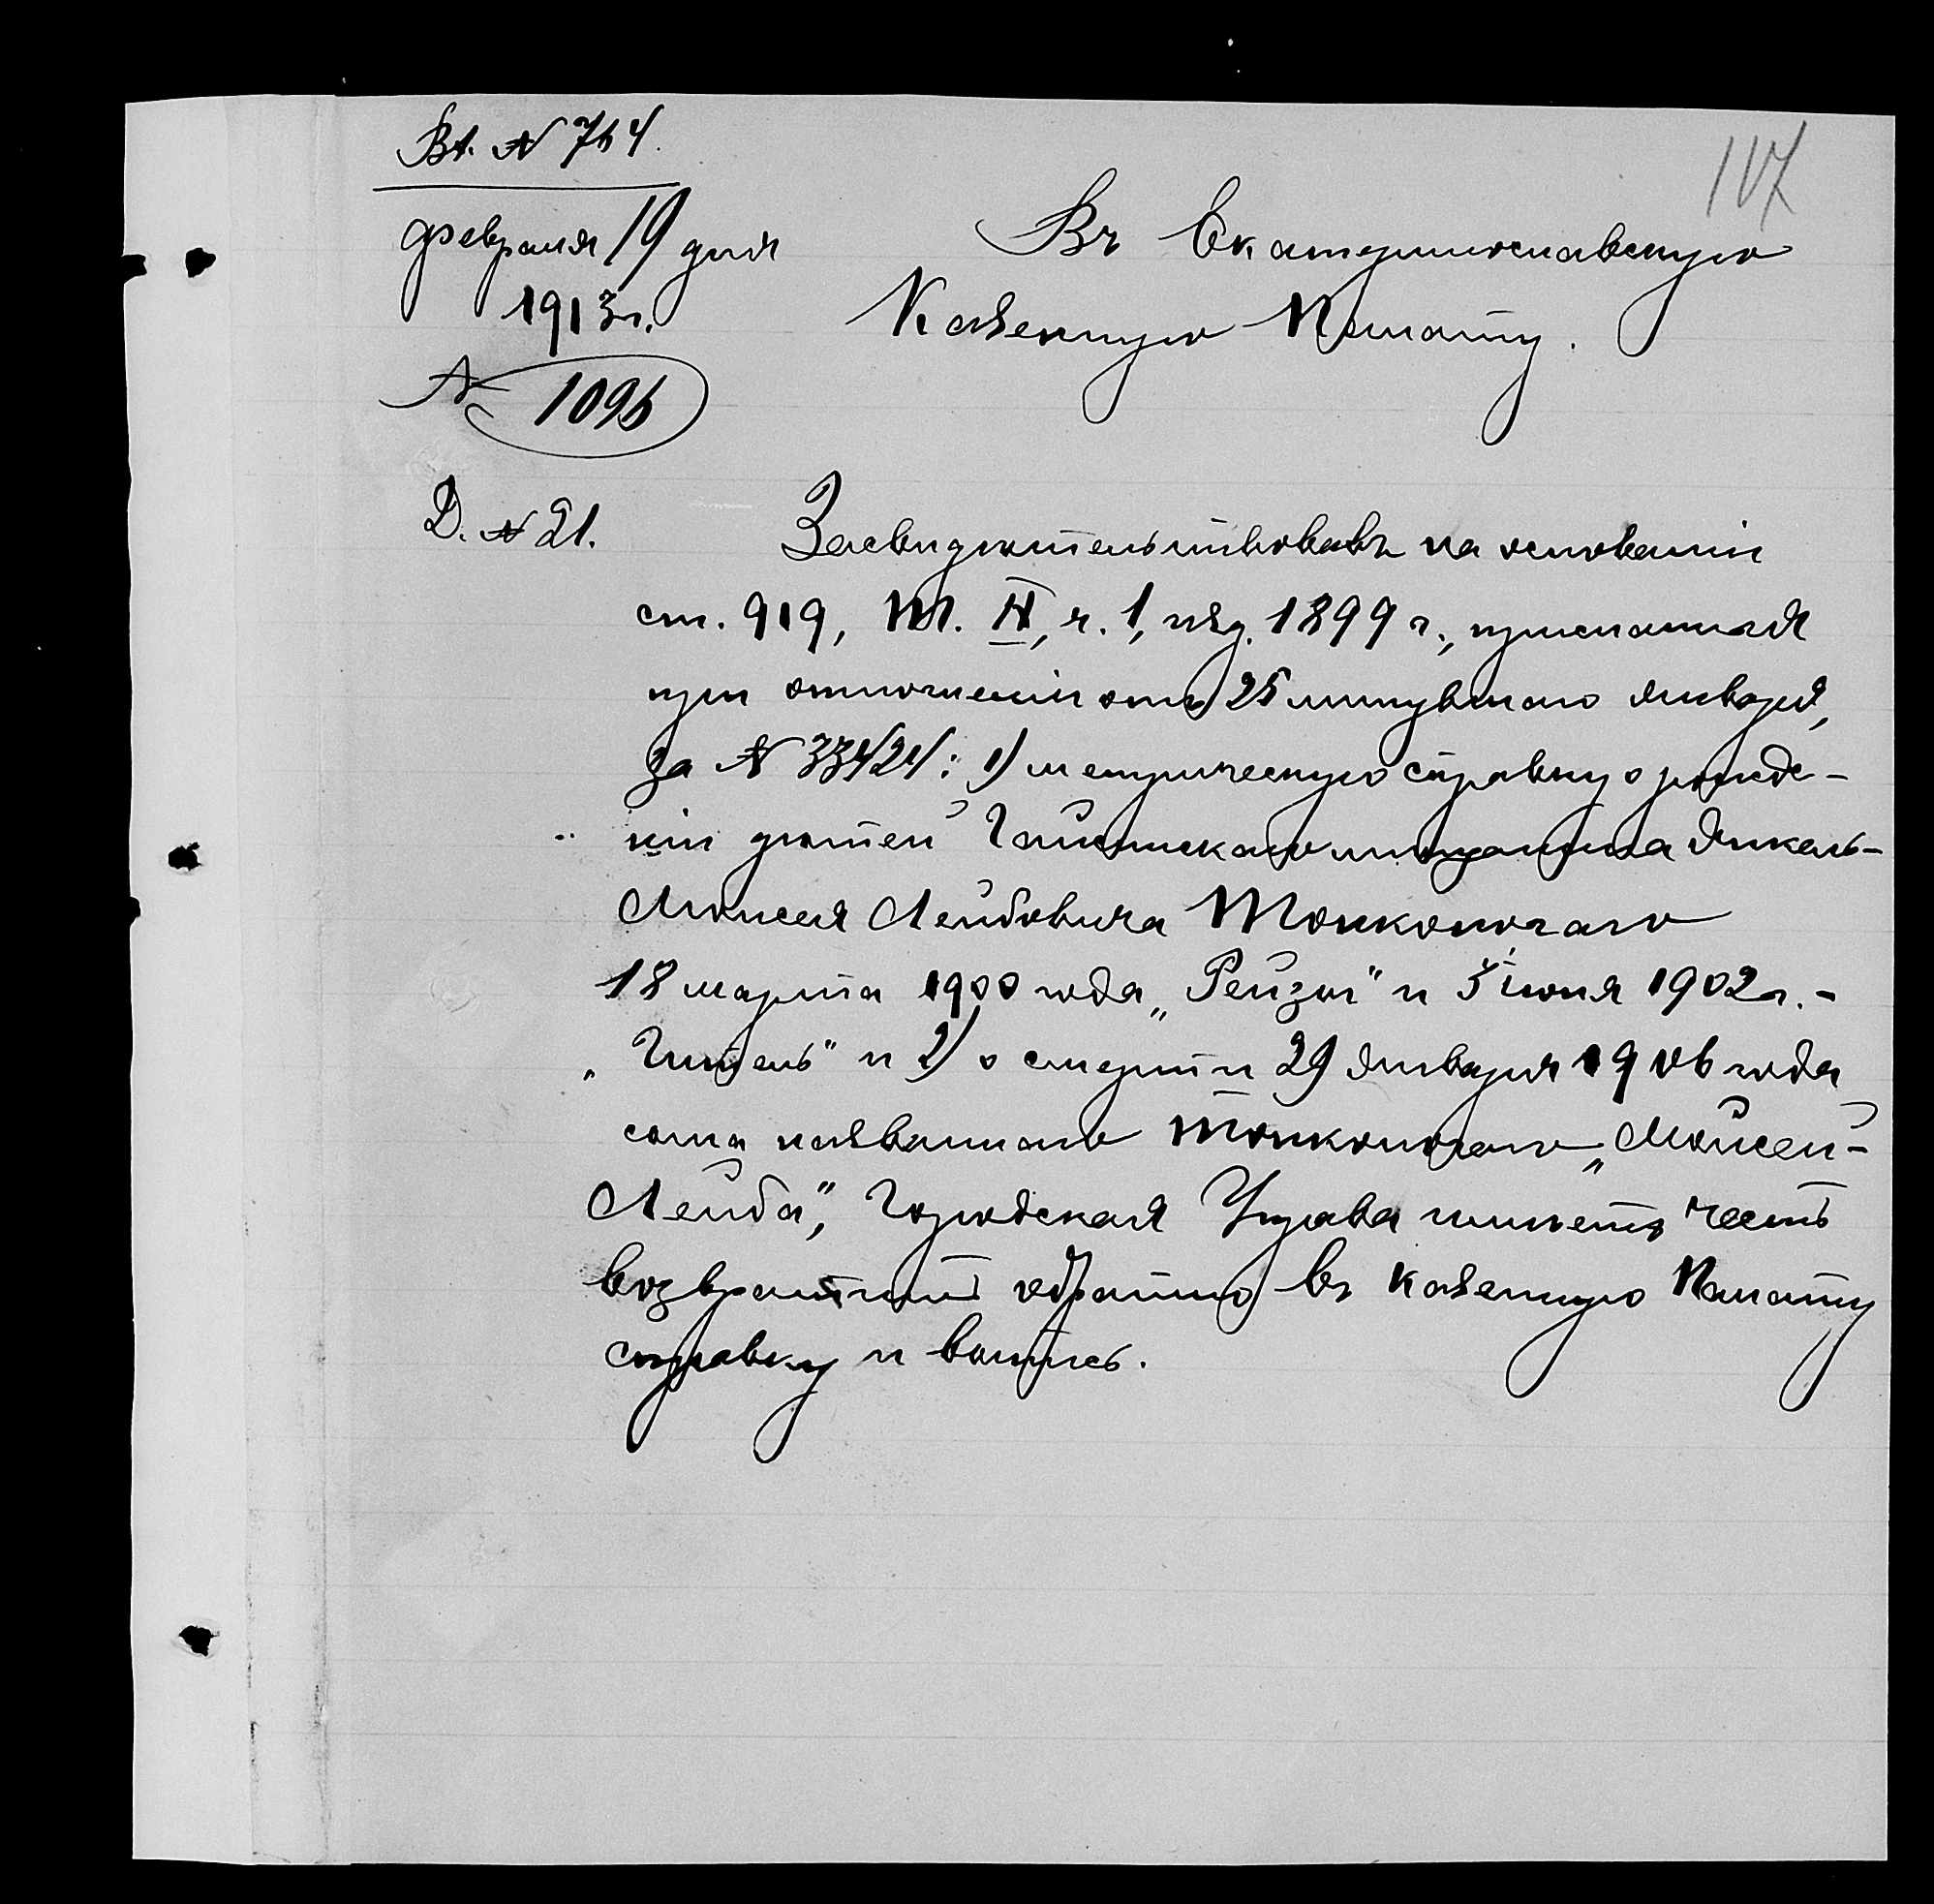 Вх. № 764.
117
февраля 19 дня
1913 г.
№ 1096
Въ Екатеринославскую
Казенную Палату.
Д. № 21.
Засвидѣтельствовавъ на основаніи
ст. 919, Т. IX, ч. 1, изд. 1899 г., присланныя
при отношеніи отъ 25 минувшаго января,
за № 33424: 1) метрическую справку о рожде-
ніи дѣтей мѣщанина Янкель-
Моисея Лейбовича Тонконогаго
18 марта 1900 года „Рейзы" и 3 іюня 1902 г. -
„Гитель" и 2) о смерти 29 января 1906 года
сына названнаго Тонконогаго „Мойсей-
Лейба", Городская Управа имѣетъ честь
возвратить обратно въ Казенную Палату
справку и выпись.